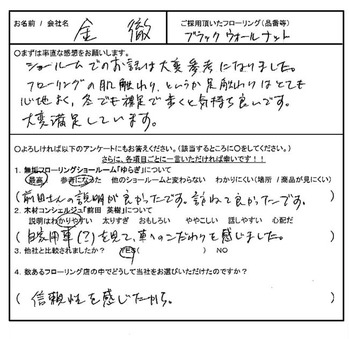 お名前 / 会社名 金 徹
ご採用頂いたフローリング(品番等) ブラックウォールナット
○まずは率直な感想をお願いします。
ショールームでのお話は大変参考になりました。
フローリングの肌触わり、というか足触わりはとても
心地よく、冬でも裸足で歩くと気持ち良いです。
大変満足しています。
○よろしければ以下のアンケートにもお答えください。(該当するところに○をしてください。)
さらに、各項目ごとに一言いただければ幸いです!!
1. 無垢フローリングショールーム「ゆらぎ」について
最高 参考になった 他のショールームと変わらない わかりにくい(場所 / 商品が見にくい)
(前田さんの説明が良かったです。訪ねて良かったです。)
2. 木材コンシェルジュ「前田 英樹」について
説明はわかりやすい 太りすぎ おもしろい ややこしい 話しやすい 心配だ
(自家用車(?)を見て、車へのこだわりを感じました。)
3. 他社と比較されましたか? YES( ) NO
4. 数あるフローリング店の中でどうして当社をお選びいただけたのですか?
(信頼性を感じたから。)